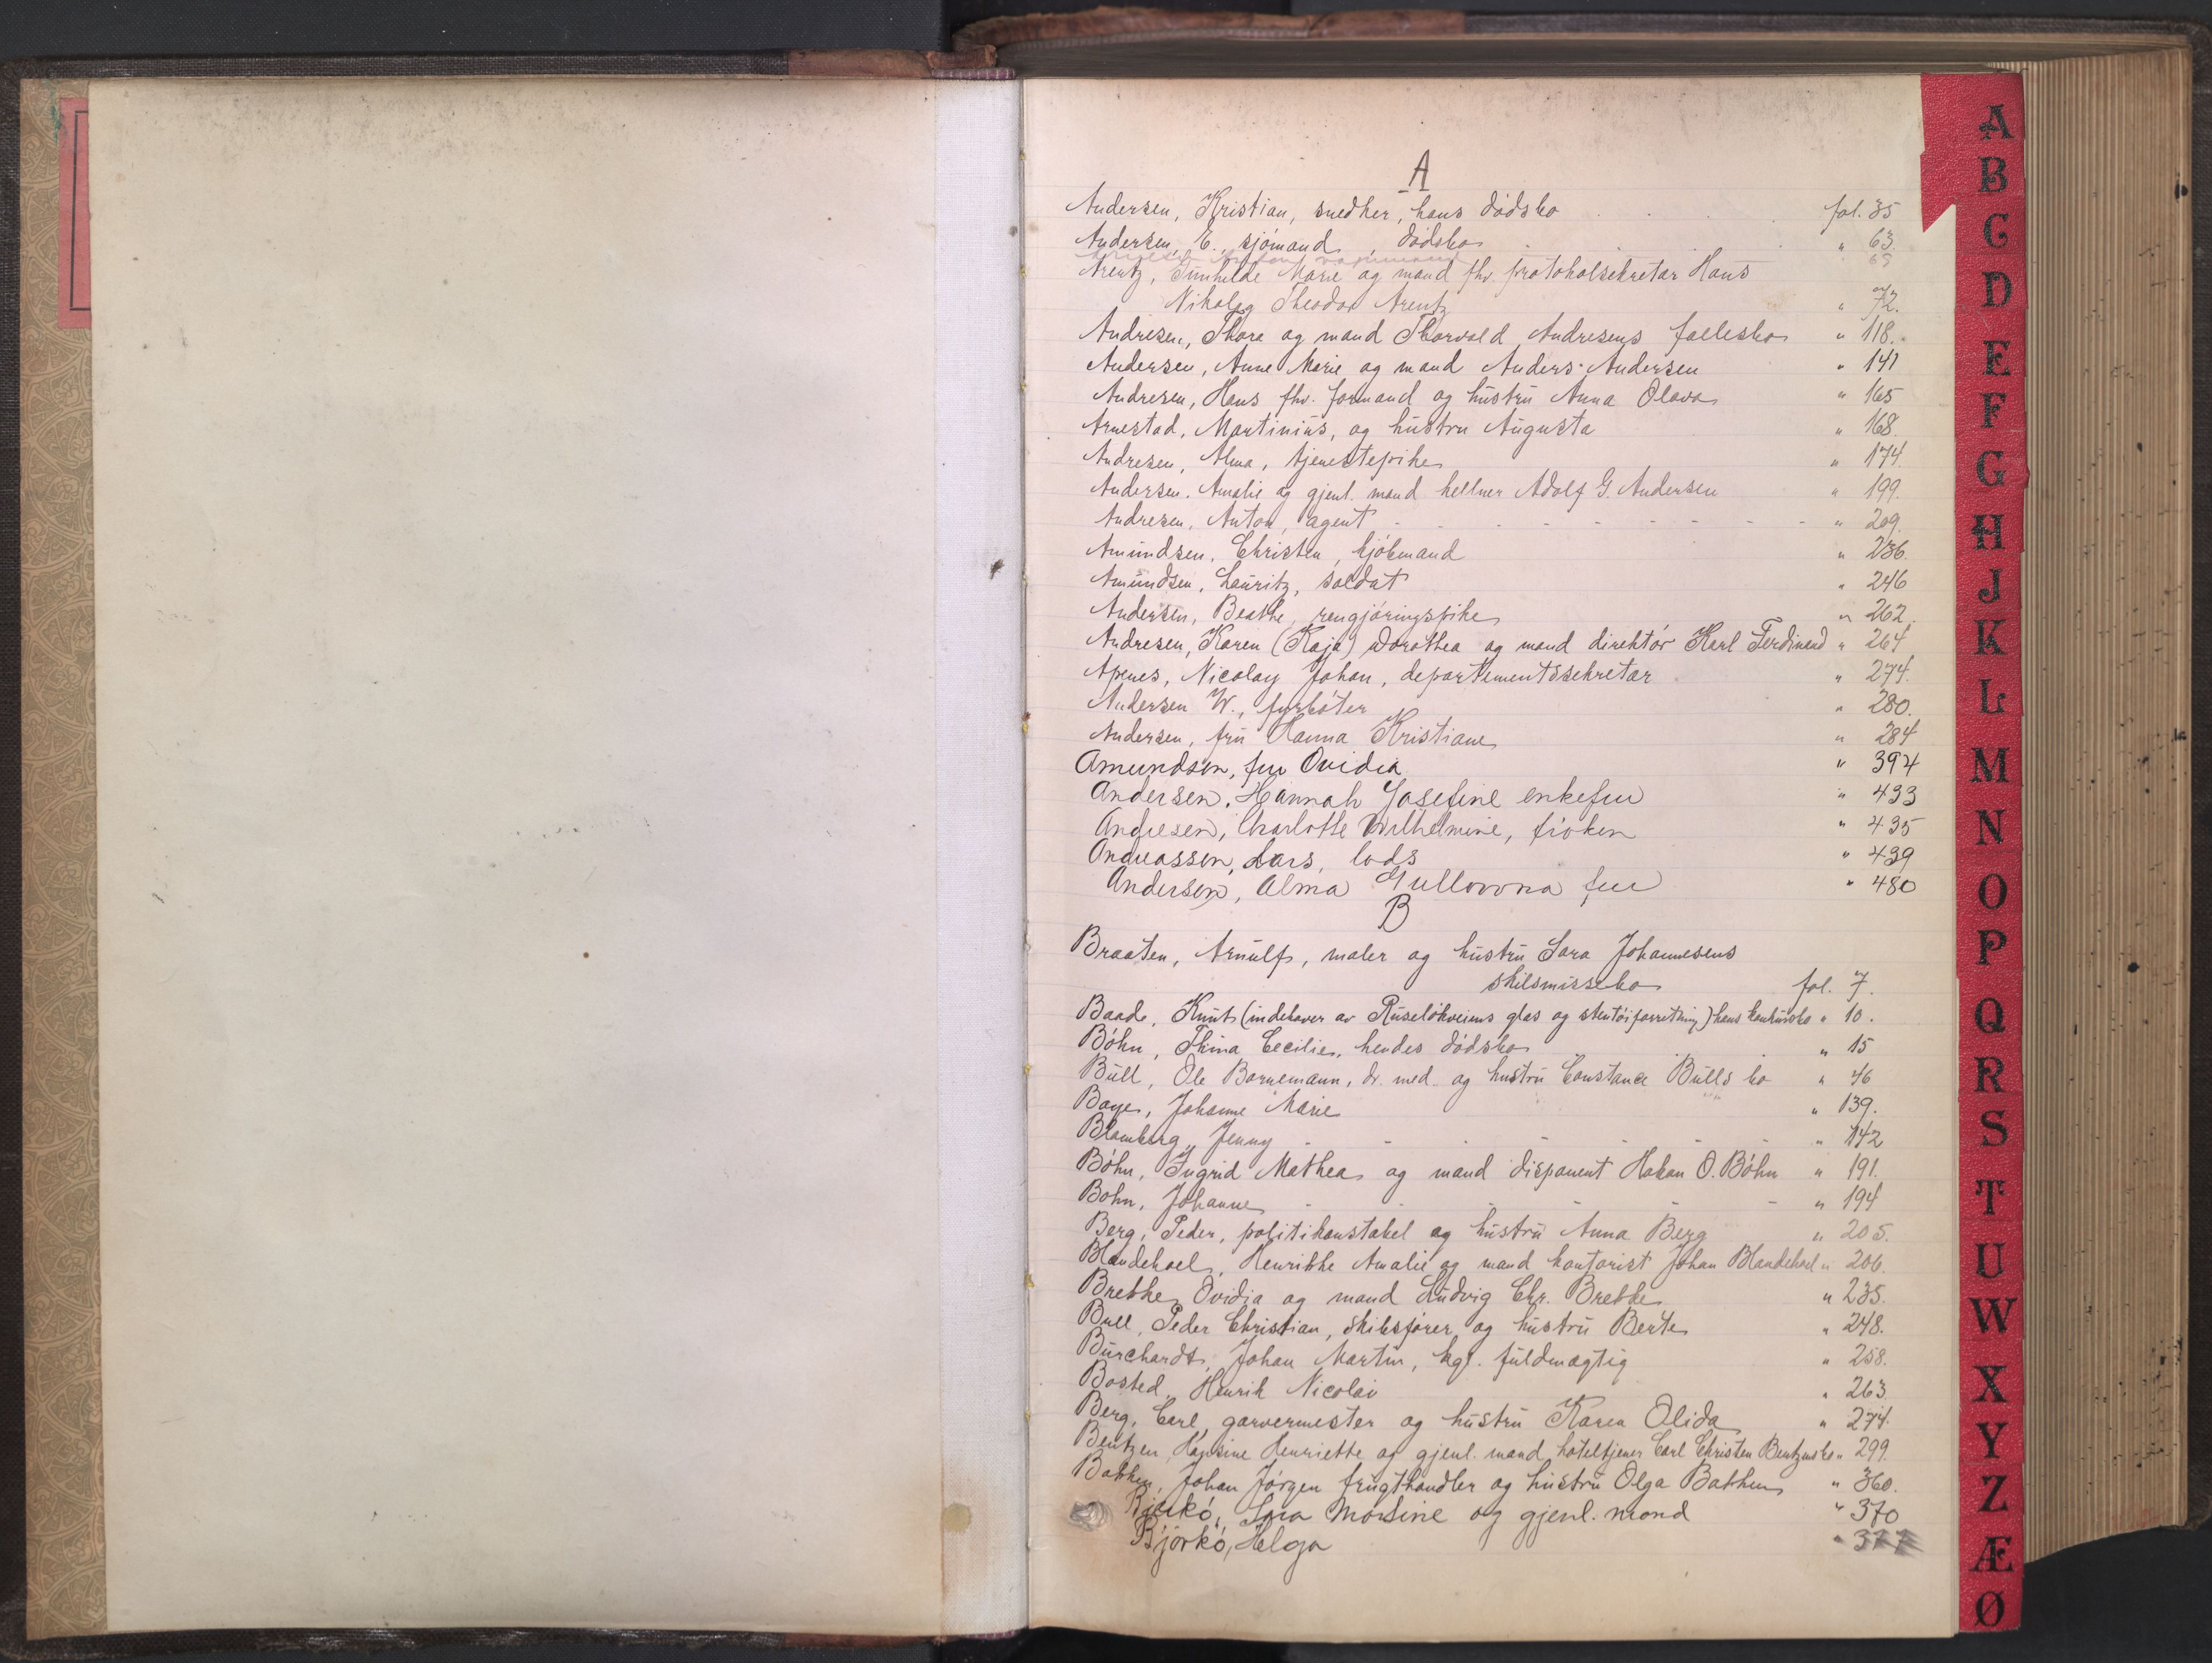 A
Andersen, Kristian, snedker, hans dödsbo . . . . fol. 35
Andersen, E., sjömand, dödsbo . . . " 63.
" 69
Arentz, Gunhilde Marie og mand fhv. protokolsekretær Hans
Nikolay Theodor Arentz " 72.
Andresen, Thora og mand Thorvald Andresens fællesbo " 118.
Andersen, Anne Marie og mand Anders Andersen " 141
Andresen, Hans fhv. formand og hustru Anna Olava " 165
Arnestad, Martinius, og hustru Augusta " 168.
Andresen, Alma, tjenestepike " 174.
Andersen, Amalie og gjenl. mand kellner Adolf G. Andersen " 199.
Andresen, Anton, agent - - - - - - - " 209.
Amundsen, Christen, kjöbmand " 236.
Amundsen, Lauritz, soldat " 246
Andersen, Beathe, rengjöringspike " 262
Andresen, Karen (Kaja) Dorothea og mand direktör Karl Ferdinand " 264
Apenes, Nicolay Johan, departementssekretær " 274.
Andersen W., fyrböter " 280.
Andersen, fru Hanna Kristiane " 284
Amundsen, fru Ovidia " 394
Andersen, Hannah Josefine enkefru " 433
Andresen, Charlotte Wilhelmine, fröken " 435
Andreassen, Lars, lods " 439
Andersen, Alma Gullovona fru " 480
B
Braaten, Arnulf, maler og hustru Sara Johannesens
skilsmissebo fol. 7.
Baade, Knut (indehaver av Ruselökveiens glas og stentöiforretning) hans konkursbo " 10.
Böhn, Thina Cecilie, hendes dödsbo " 15
Bull, Ole Bornemann, dr. med. og hustru Constance Bulls bo " 46
Boye, Johanne Marie " 139.
Blomberg, Jenny - - - - - - " 142
Böhn, Ingrid Mathea og mand disponent Hakon O. Böhn " 191.
Bohn, Johanne - - - - " 194
Berg, Peder, politikonstabel og hustru Anna Berg " 205.
Blandehoel, Henrikke Amalie og mand kontorist Johan Blandehoel " 206.
Brekke, Ovidia og mand Ludvig Chr. Brekke " 235.
Bull, Peder Christian, skibsförer og hustru Berte " 248.
Burchardt, Johan Martin, kgl. fuldmægtig " 258.
Bosted, Henrik Nicolai " 263.
Berg, Carl, garvermester og hustru Karen Olida " 274.
Bentzen, Hansine Henriette og gjenl. mand hoteltjener Carl Christen Bentzens bo " 299.
Bakken, Johan Jörgen frugthandler og hustru Olga Bakken " 360.
Björkö, Lara Marsine og gjenl. mand " 370
Björkö, Helga " 377
A
B
C
D
E
F
G
H
J
K
L
M
N
O
P
Q
R
S
T
U
W
X
Y
Z
Æ
Ø